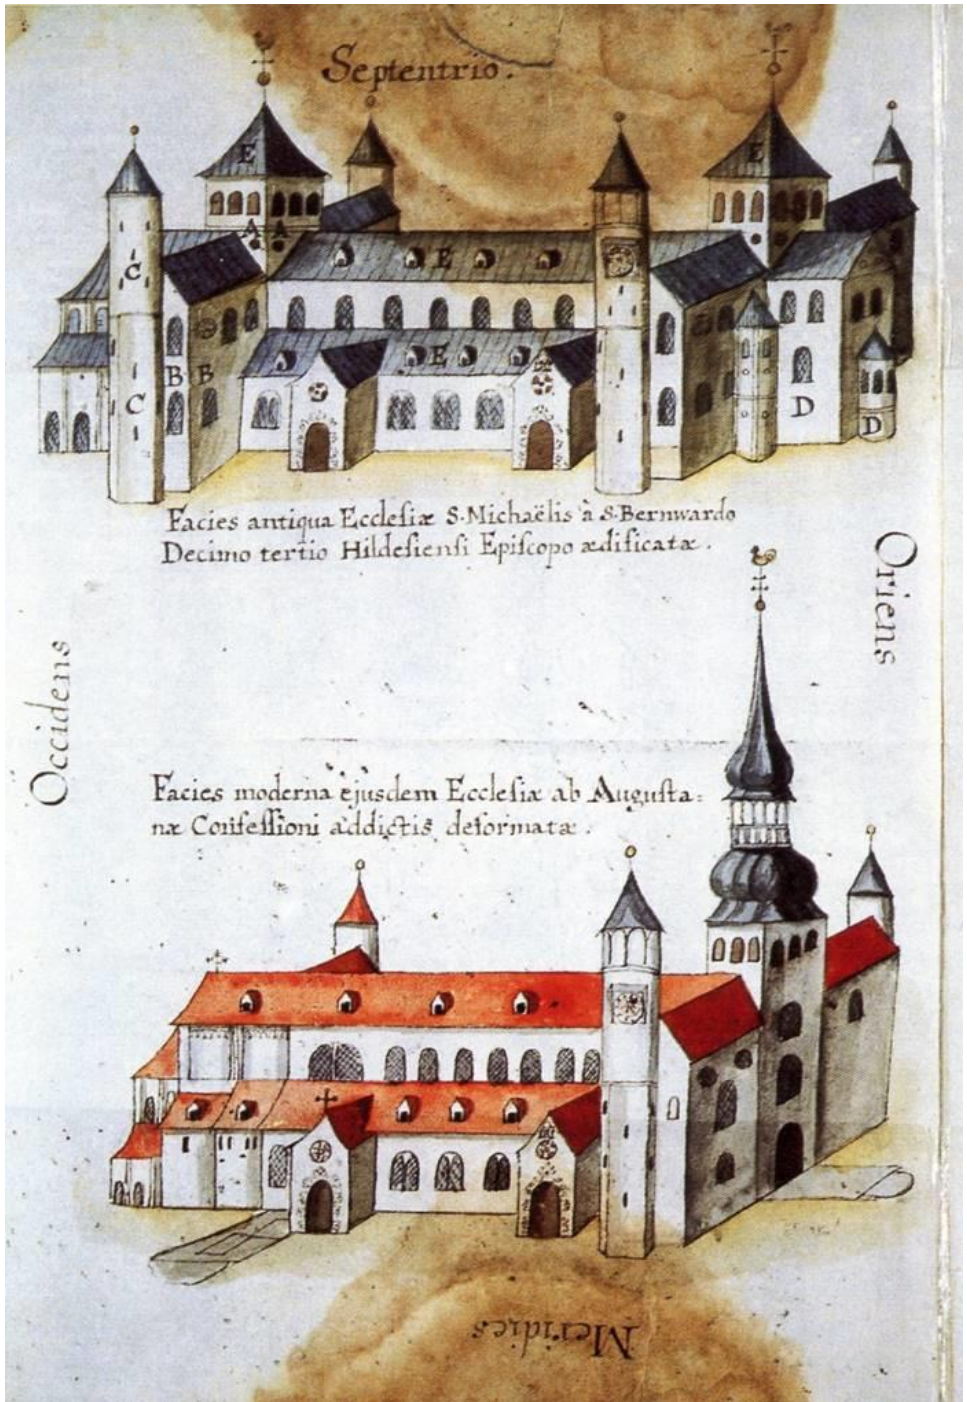 Septentrio.
E
E
A A
C
E
B B
E
C
D
D
Facies antiqua Ecclesiæ S. Michaëlis à S. Bernwardo
Decimo tertio Hildesiensi Episcopo ædificatæ.
Oriens
Occidens
Facies moderna ejusdem Ecclesiæ ab Augusta=
næ Confessioni addictis deformatæ.
Meridies